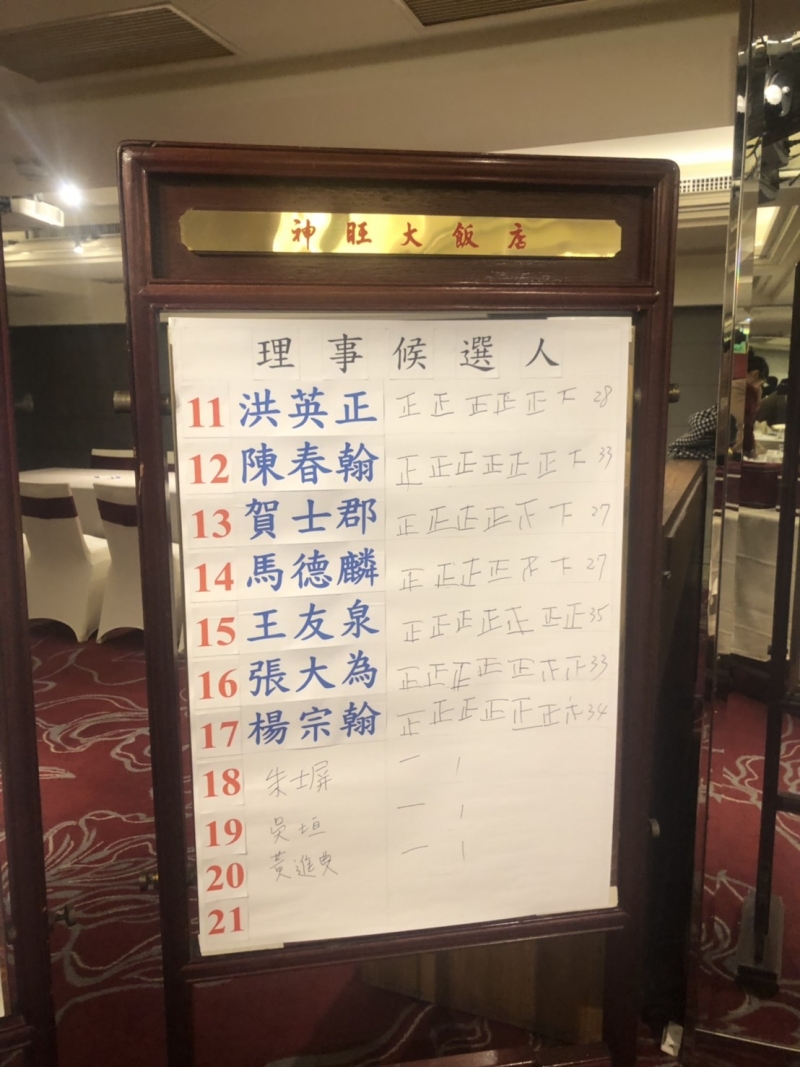 神旺大飯店
理事候選人
11 洪英正 正正正正正下 28
12 陳春翰 正正正正正正下 33
13 賀士郡 正正正正 下 27
14 馬德麟 正正正正 下 27
15 王友泉 正正正正正正正 35
16 張大為 正正正正正 33
17 楊宗翰 正正正正正正 34
18 朱士屏 一 1
19 吳垣 一 1
20 黃進 一 1
21